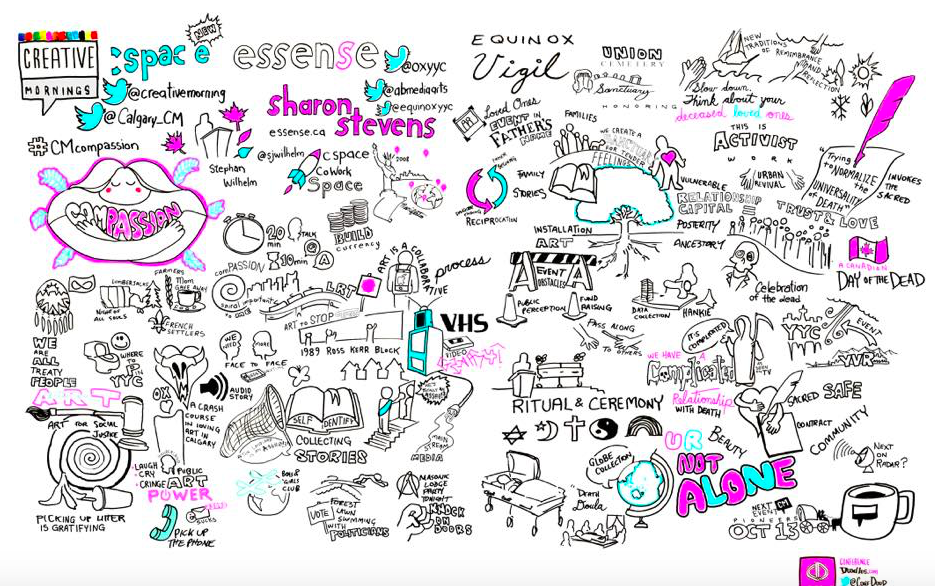 CREATIVE
MORNINGS
NEW
:space
essense
@oxyyc
@creativemorning
@Calgary_CM
@abmediaarts
@eequinoxyyc
sharon
stevens
essense.ca
#CMcompassion
Stephan
Wilhelm
@sjwilhelm
cspace
CoWork
Space
2008
COMPASSION
20
min
TALK
10min
A
BUILD
currency
comPASSION
Spiral importance
LRT
ART IS A COLLABORATIVE
process
ART TO STOP
1989 ROSS KERR BLOCK
VHS
VIDEO
FARMERS
LUMBERJACKS
Mom
CAME AWAY
NIGHT OF
ALL SOULS
FRENCH
SETTLERS
WE
ARE
ALL
TREATY
PEOPLE
WHERE
TO
P IN
YYC
WE
NEED
MORE
FACE TO FACE
OX
AUDIO
STORY
A CRASH
COURSE
IN LOVING
ART IN
CALGARY
SELF IDENTIFY
COLLECTING
STORIES
MAIN
STREAM
MEDIA
ART
ART FOR SOCIAL
JUSTICE
· LAUGH
· CRY
· CRINGE
PUBLIC
ART
POWER
PICKING UP LITTER
IS GRATIFYING
PICK UP
THE PHONE
BUCKS
BOYS &
GIRLS
CLUB
VOTE
FOREST
LAWN
SWIMMING
WITH
POLITICIANS
MASONIC
LODGE
PARTY
TONIGHT
KNOCK
ON
DOORS
EQUINOX
Vigil
UNION
CEMETERY
Sanctuary
HONORING
NEW
TRADITIONS
OF REMEMBRANCE
AND
REFLECTION
Slow down.
Think about your
deceased loved ones
Loved Ones
EVENT IN
FATHER'S
NAME
FAMILIES
WE CREATE A
FOR TENDER
FEELINGS
FAMILY
STORIES
RECIPROCATION
W
VULNERABLE
RELATIONSHIP
CAPITAL
POSTERITY
ANCESTORY
INSTALLATION
ART
THIS IS
ACTIVIST
WORK
URBAN
REVIVAL
"Trying
to NORMALIZE
the
UNIVERSALITY
OF DEATH"
INVOKES
THE
SACRED
TRUST & LOVE
A CANADIAN
DAY OF THE DEAD
EVENT
OBSTACLES
PUBLIC
PERCEPTION
FUND
RAISING
DATA
COLLECTION
HANKIE
PASS ALONG
TO OTHERS
Celebration
of the dead
IT'S COMPLICATED
WE HAVE A
Complicated
Relationship
WITH DEATH
YYC
EVENT
YYR
SACRED SAFE
CONTRACT
COMMUNITY
BEAUTY
NEXT
ON
RADAR?
RITUAL & CEREMONY
GLOBE
COLLECTION
"DEATH
Doula
UR
NOT
ALONE
NEXT
EVENT
PIONEERS
OCT 13
CONFERENCE
Doodles.com
@ConfDood